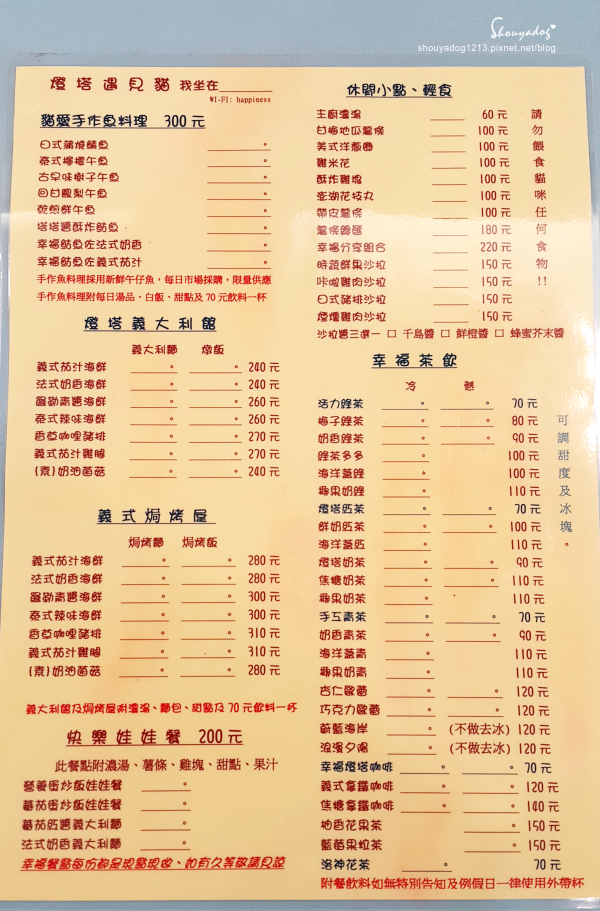 Shouyadog
shouyadog1213.pixnet.net/blog
燈塔遇見貓 我坐在
WI-FI: happiness
貓愛手作魚料理 300元
日式蒲燒鯖魚
泰式檸檬午魚
古早味樹子午魚
回甘鳳梨午魚
乾煎鮮午魚
塔塔醬酥炸魴魚
幸福魴魚佐法式奶香
幸福魴魚佐義式茄汁
手作魚料理採用新鮮午仔魚，每日市場採購，限量供應
手作魚料理附每日湯品、白飯、甜點及70元飲料一杯
燈塔義大利館
義大利麵 燉飯
義式茄汁海鮮 240元
法式奶香海鮮 240元
羅勒青醬海鮮 260元
泰式辣味海鮮 260元
香草咖哩豬排 270元
義式茄汁雞腿 270元
(素)奶油菌菇 240元
義式焗烤屋
焗烤麵 焗烤飯
義式茄汁海鮮 280元
法式奶香海鮮 280元
羅勒青醬海鮮 300元
泰式辣味海鮮 300元
香草咖哩豬排 310元
義式茄汁雞腿 310元
(素)奶油菌菇 280元
義大利館及焗烤屋附濃湯、麵包、甜點及70元飲料一杯
快樂娃娃餐 200元
此餐點附濃湯、薯條、雞塊、甜點、果汁
營養蛋炒飯娃娃餐
蕃茄蛋炒飯娃娃餐
蕃茄肉醬義大利麵
法式奶香義大利麵
幸福餐點每份都是現點現做、如有久等敬請見諒
休閒小點、輕食
主廚濃湯 60元
甘梅地瓜薯條 100元
美式洋蔥圈 100元
雞米花 100元
酥炸雞塊 100元
澎湖花枝丸 100元
帶皮薯條 100元
薯條雞塊 180元
幸福分享組合 220元
時蔬鮮果沙拉 150元
咔啦雞肉沙拉 150元
日式豬排沙拉 150元
煙燻雞肉沙拉 150元
請勿餵食貓咪任何食物!!
沙拉醬三選一 □ 千島醬 □ 鮮橙醬 □ 蜂蜜芥末醬
幸福茶飲
冷 熱
活力綠茶 70元
梅子綠茶 80元
奶香綠茶 90元
綠茶多多 100元
海洋蓋綠 100元
椰果奶綠 110元
燈塔紅茶 70元
鮮奶紅茶 100元
海洋蓋紅 110元
燈塔奶茶 90元
焦糖奶茶 110元
椰果奶茶 110元
手工青茶 70元
奶香青茶 90元
海洋蓋青 110元
椰果奶青 110元
杏仁歐蕾 120元
巧克力歐蕾 120元
蔚藍海岸 (不做去冰) 120元
浪漫夕陽 (不做去冰) 120元
幸福燈塔咖啡 70元
義式拿鐵咖啡 120元
焦糖拿鐵咖啡 140元
柚香花果茶 150元
藍莓果粒茶 150元
洛神花茶 70元
可調甜度及冰塊。
附餐飲料如無特別告知及例假日一律使用外帶杯